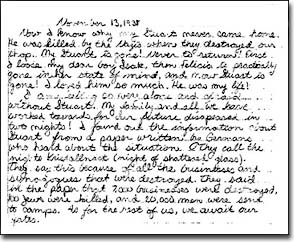 November 13, 1938
Now I know why my Stuart never came home.
He was killed by the Nazis when they destroyed our
shop. My Stuart is gone! Never to return! First
I loose my dear boy Isaak, then Felicia is practically
gone in her state of mind, and now Stuart is
gone! I loved him so much. He was my life!
I am left so very alone and afraid
without Stuart. My family and all we have
worked towards for our future disappeared in
two nights! I found out the information about
Stuart from a paper written by Germans
who heard about the situation. They call the
night Kristallnacht (night of shattered glass).
They say this because of all the businesses and
synagogues that were destroyed. They said
in the paper that 7,500 businesses were destroyed,
Jews were killed, and 30,000 men were sent
to camps. As for the rest of us, we await our
fates.